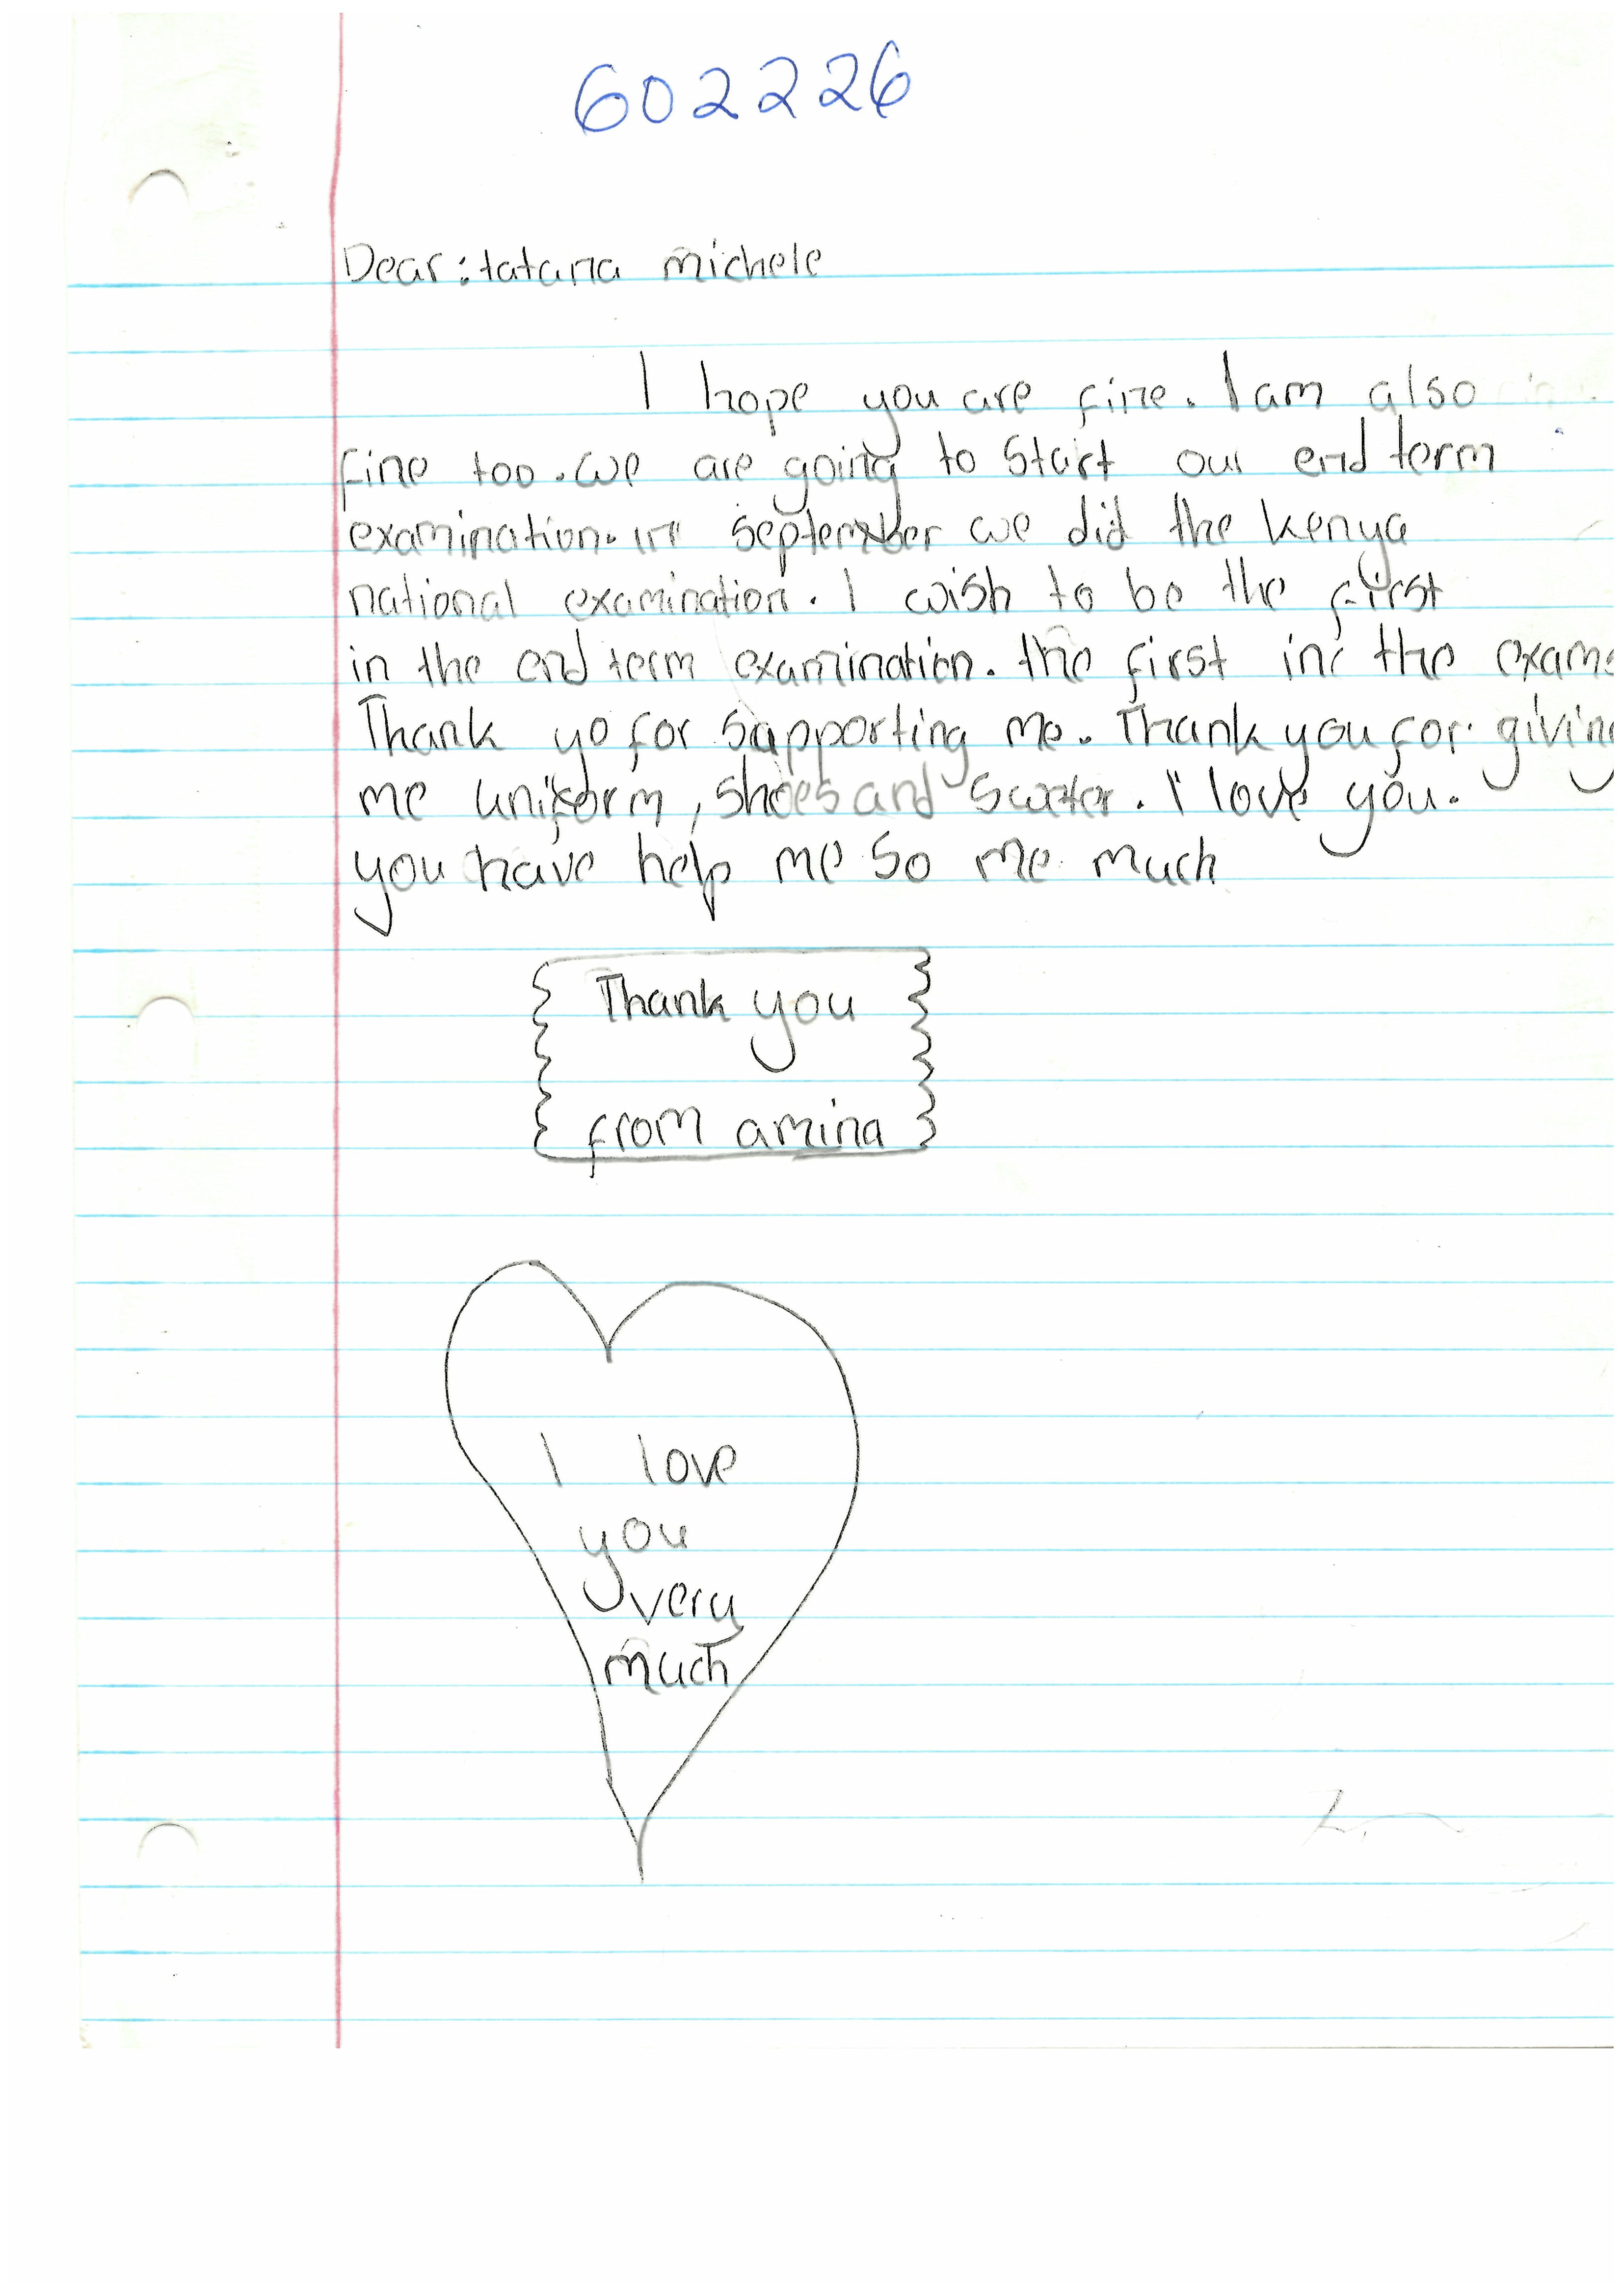 602226
Dear: tatana michele
I hope you are fine. I am also
fine too. we are going to start our end term
examination. in september we did the kenya
national examination. I wish to be the first
in the end term examination. the first in the exams
Thank yo for supporting me. Thank you for giving
me uniform, shoes and sweater. I love you.
you have help me so me much
Thank you
from amina
I love
you
very
much